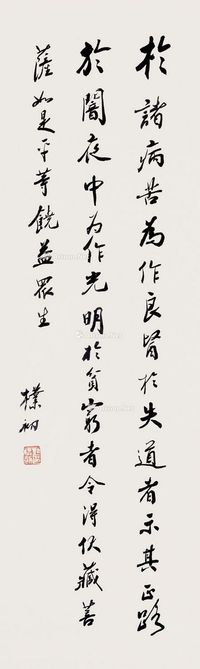 於諸病苦為作良醫於失道者示其正路
於闇夜中為作光明於貧窮者令得伏藏菩
薩如是平等饒益眾生
樸初